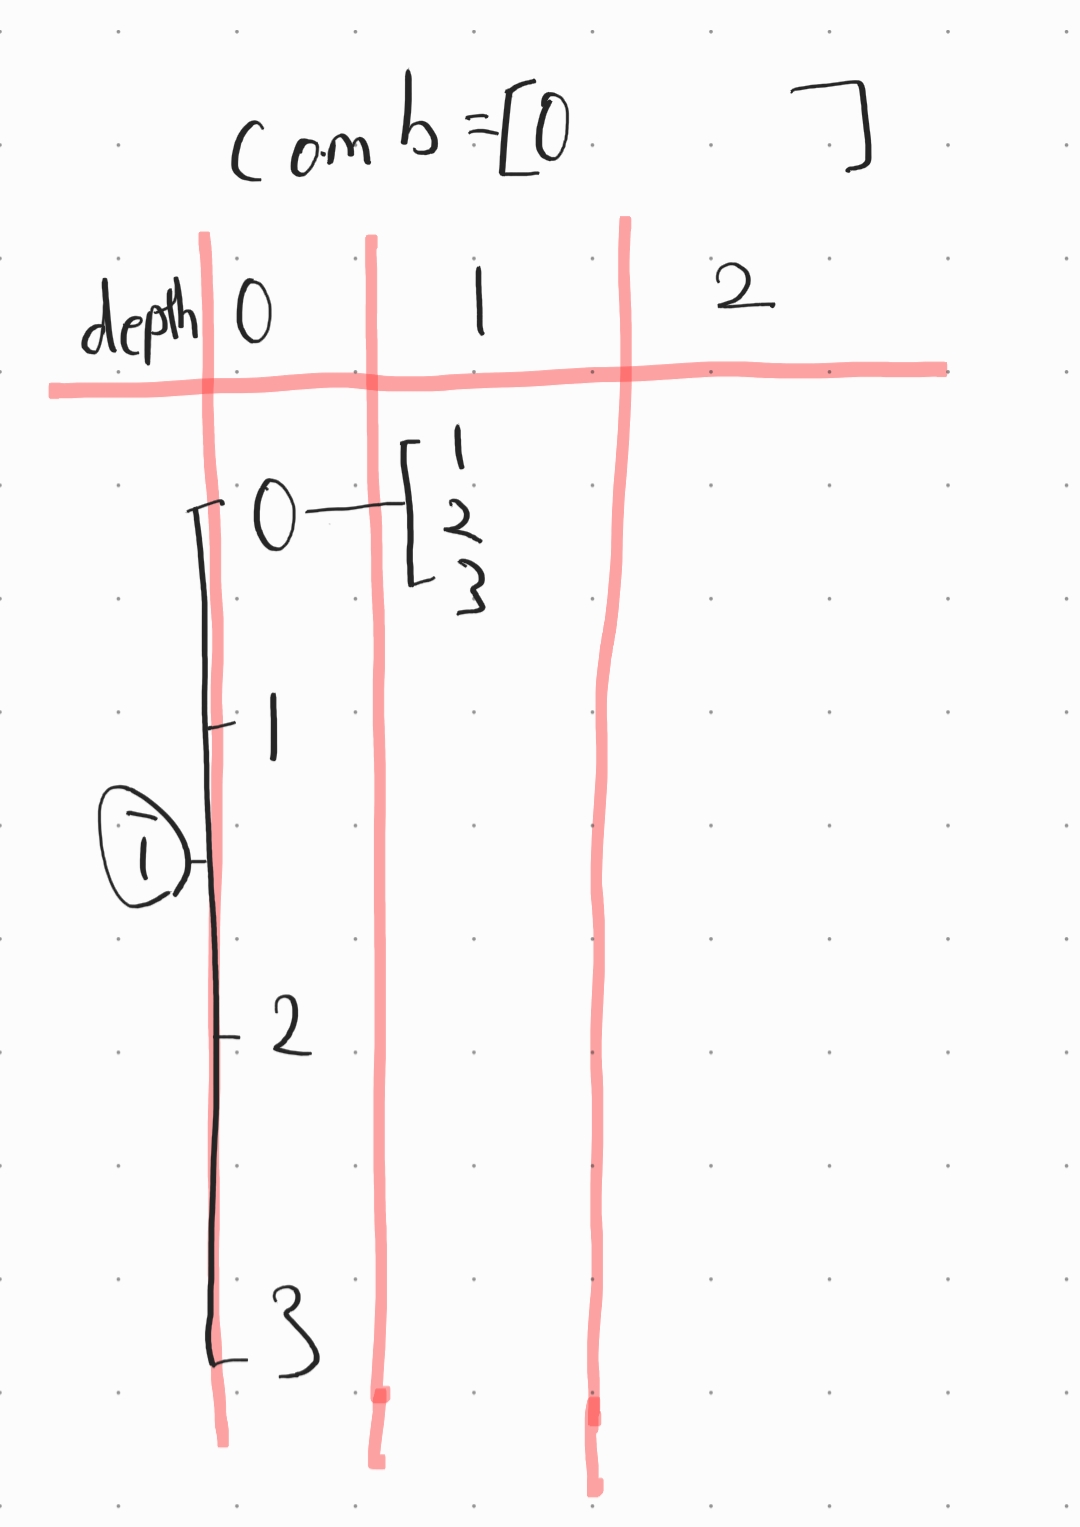 comb=[0 ]
depth 0 1 2
0 1
2
3
1
i
2
3